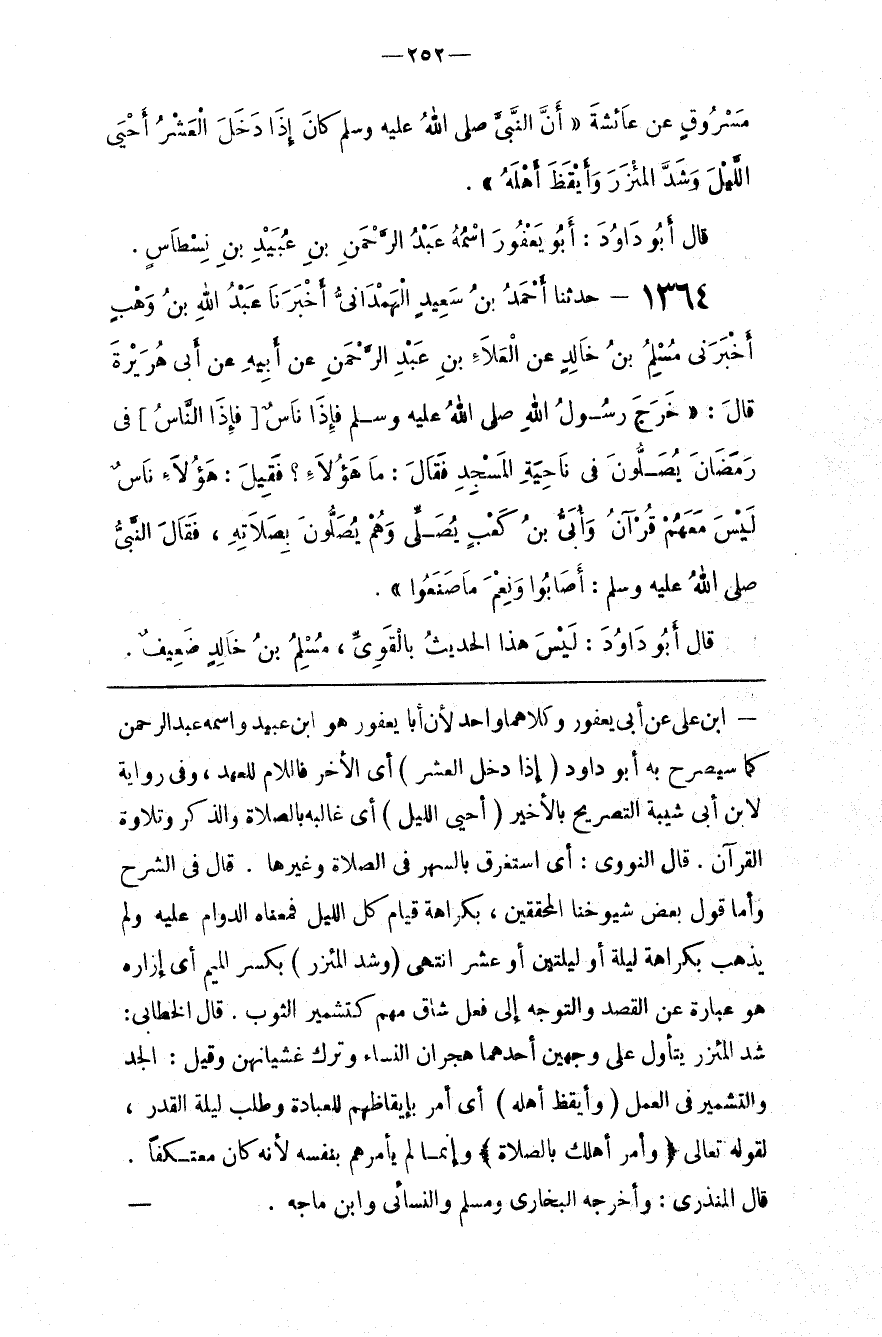 —٢٥٢—
مَسْرُوقٍ عن عَائشةَ « أَنَّ النَّبيَّ صلى اللهُ عليه وسلم كانَ إِذَا دَخَلَ الْعَشْرُ أَحْيَى
اللَّيْلَ وَشَدَّ المئْزَرَ وَأَيْقَظَ أَهْلَهُ » .
قال أَبُو دَاوُدَ : أَبُو يَعْفُورَ اسْمُهُ عَبْدُ الرَّحْمَنِ بنِ عُبَيْدِ بنِ نِسْطَاسٍ .
١٣٦٤ — حدثنا أَحْمَدُ بنُ سَعِيدٍ الْهَمْدَانيُّ أَخْبَرَنَا عَبْدُ اللهِ بنُ وَهْبٍ
أَخْبَرَنى مُسْلِمُ بنُ خَالِدٍ عن الْعَلاَءِ بنِ عَبْدِ الرَّحْمَنِ عن أَبِيهِ عن أَبى هُرَيْرةَ
قالَ : « خَرَجَ رسُولُ اللهِ صلى اللهُ عليه وسلم فإِذَا نَاسٌ [ فإِذَا النَّاسُ ] فى
رَمَضَانَ يُصَلُّونَ فى نَاحِيَةِ المَسْجِدِ فقَالَ : مَا هَؤُلاَءِ ؟ فَقِيلَ : هَؤُلاَءِ نَاسٌ
لَيْسَ مَعَهُمْ قُرْآنٌ وَأُبَىُّ بنُ كَعْبٍ يُصَلِّى وَهُمْ يُصَلُّونَ بِصَلاَتِهِ ، فقَالَ النَّبىُّ
صلى اللهُ عليه وسلم : أَصَابُوا وَنِعْمَ مَاصَنَعُوا » .
قال أَبُو دَاوُدَ : لَيْسَ هذا الحديثُ بالْقَوِىِّ ، مُسْلِمُ بنُ خَالِدٍ ضَعِيفٌ .
— ابن على عن أبى يعفور وكلاهما واحد لأن أبا يعفور هو ابن عبيد واسمه عبد الرحمن
كما سيصرح به أبو داود ( إذا دخل العشر ) أى الأخر فاللام للعهد ، وفى رواية
لابن أبى شيبة التصريح بالأخير ( أحيى الليل ) أى غالبه بالصلاة والذكر وتلاوة
القرآن . قال النووى : أى استغرق بالسهر فى الصلاة وغيرها . قال فى الشرح
وأما قول بعض شيوخنا المحققين ، بكراهة قيام كل الليل فمعناه الدوام عليه ولم
يذهب بكراهة ليلة أو ليلتين أو عشر انتهى ( وشد المئزر ) بكسر الميم أى إزاره
هو عبارة عن القصد والتوجه إلى فعل شاق مهم كتشمير الثوب . قال الخطابى :
شد المئزر يتأول على وجهين أحدهما هجران النساء وترك غشيانهن وقيل : الجد
والتشمير فى العمل ( وأيقظ أهله ) أى أمر بإيقاظهم للعبادة وطلب ليلة القدر ،
لقوله تعالى ﴿ وأمر أهلك بالصلاة ﴾ وإنما لم يأمرهم بنفسه لأنه كان معتكفاً .
قال المنذرى : وأخرجه البخارى ومسلم والنسائى وابن ماجه . —